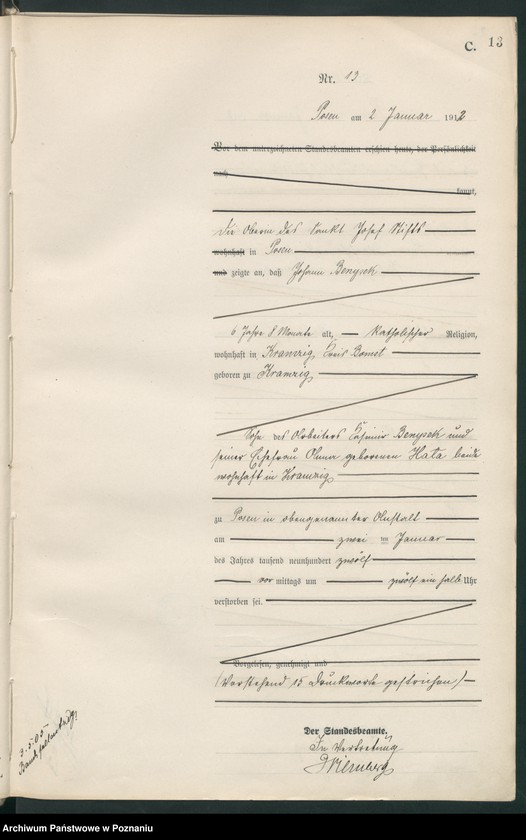 C. 13
Nr. 13
Posen am 2 Januar 1912
Vor dem unterzeichneten Standesbeamten erschien heute, der Persönlichkeit
nach
kannt,
die Oberin des Sankt Josef Stifts
wohnhaft in Posen
und zeigte an, daß Johann Benysek
6 Jahre 8 Monate alt, katholischer Religion,
wohnhaft in Kramzig, Kreis Bomst
geboren zu Kramzig,
Sohn des Arbeiters Casimir Benysek und
seiner Ehefrau Anna geborenen Hata beide
wohnhaft in Kramzig
zu Posen in obengenannter Anstalt
am zwei ten Januar
des Jahres tausend neunhundert zwölf
vor mittags um zwölf ein halb Uhr
verstorben sei.
Vorgelesen, genehmigt und
(Vorstehend 15 Druckworte gestrichen)
Der Standesbeamte.
In Vertretung
3.5.05
Archiwum Państwowe w Poznaniu